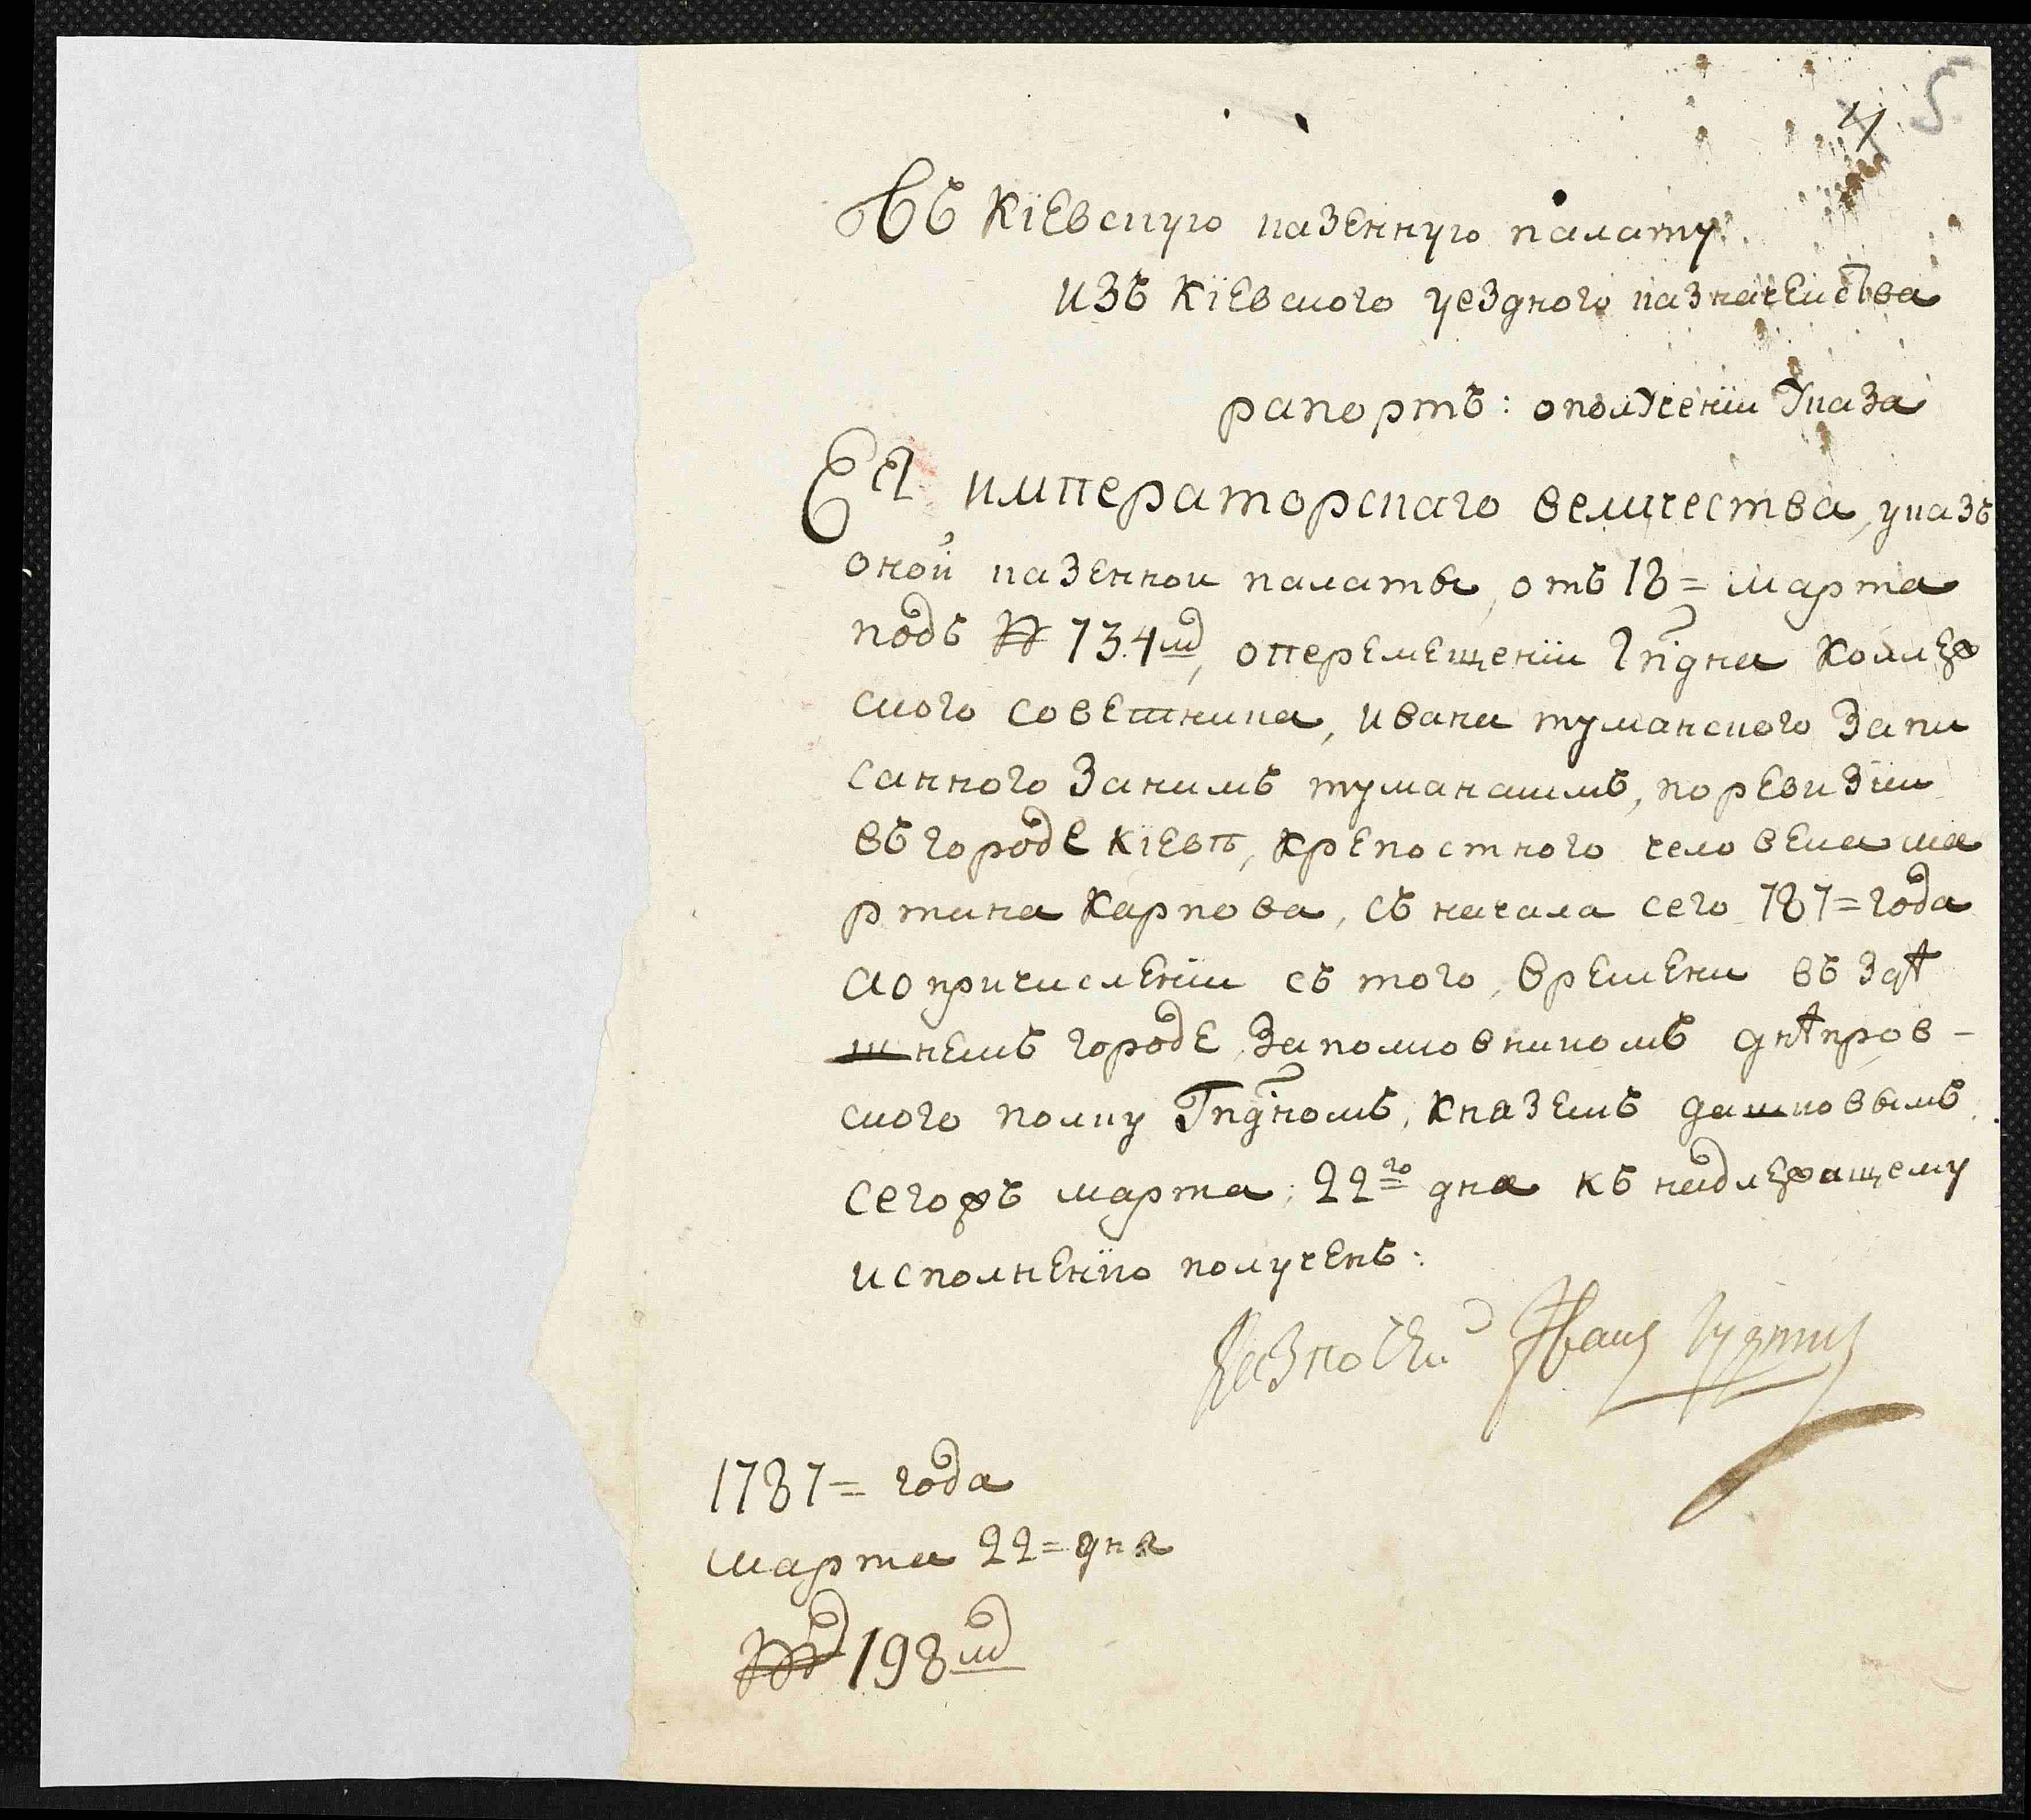 5
4
Въ Кіевскую казенную палату.
изъ Кіевского уездного казначейства
рапортъ: ополученіи Указа
ЕЯ императорскаго величества, указъ
оной казенной палаты, отъ 18= марта
подъ № 734мъ, оперемещеніи Гпдна Коллеж
ского советника, ивана туманского Запи
санного Занимъ туманскимъ, поревизіи
въгороде Кіевѣ, крепостного человека ма
ртина Карпова, съ начала сего 787= года
аопричисленіи съ того, времени въ здѣ
шнемъ городе, Заполковникомъ днѣпров-
ского полку Гпдномъ, Княземъ дашковымъ.
сегожъ марта, 22го дня къ надлежащему
исполненію полученъ:
Казначей Иванъ
1787= года
марта 22= дня
№ 198мъ